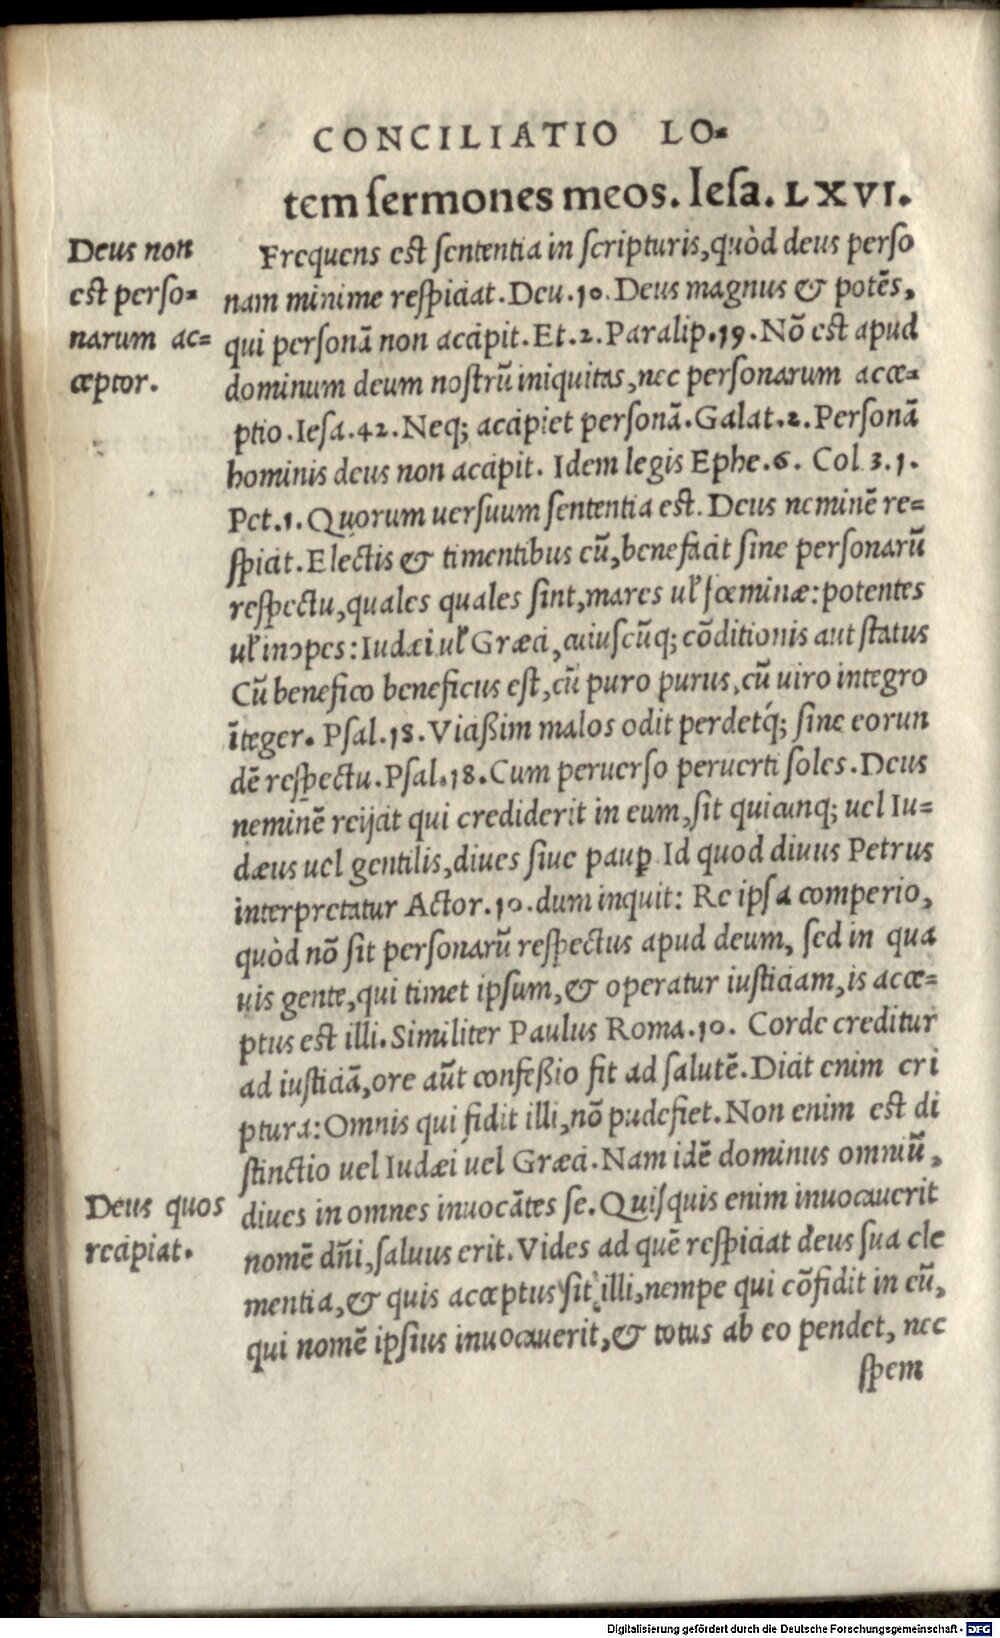 CONCILIATIO LO-
tem sermones meos. Iesa. LXVI.
Deus non
est perso-
narum ac-
ceptor.
Frequens est sententia in scripturis, quòd deus perso
nam minime respiciat. Deu. 10. Deus magnus & potēs,
qui personā non accipit. Et. 2. Paralip. 19. Nō est apud
dominum deum nostrū iniquitas, nec personarum acce-
ptio. Iesa. 42. Neq; accipiet personā. Galat. 2. Personā
hominis deus non accipit. Idem legis Ephe. 6. Col 3. 1.
Pet. 1. Quorum uersuum sententia est. Deus neminē re-
spicit. Electis & timentibus eū, benefacit sine personarū
respectu, quales quales sint, mares uel fœminæ: potentes
uel inopes: Iudæi uel Græci, cuiuscūq; cōditionis aut status
Cū benefico beneficus est, cū puro purus, cū uiro integro
īteger. Psal. 18. Vicißim malos odit perdetq́; sine eorun
dē respectu. Psal. 18. Cum peruerso peruerti soles. Deus
neminē reijcit qui crediderit in eum, sit quicunq; uel Iu-
dæus uel gentilis, diues siue paup̱ Id quod diuus Petrus
interpretatur Actor. 10. dum inquit: Re ipsa comperio,
quòd nō sit personarū respectus apud deum, sed in qua
uis gente, qui timet ipsum, & operatur iusticiam, is acce-
ptus est illi. Similiter Paulus Roma. 10. Corde creditur
ad iusticiā, ore aūt confeßio fit ad salutē. Dicit enim cri
ptura: Omnis qui fidit illi, nō pudefiet. Non enim est di
stinctio uel Iudæi uel Græci. Nam idē dominus omniū,
Deus quos
recipiat.
diues in omnes inuocātes se. Quisquis enim inuocauerit
nomē dn̄i, saluus erit. Vides ad quē respiciat deus sua cle
mentia, & quis acceptus sit illi, nempe qui cōfidit in eū,
qui nomē ipsius inuocauerit, & totus ab eo pendet, nec
spem
Digitalisierung gefördert durch die Deutsche Forschungsgemeinschaft - DFG